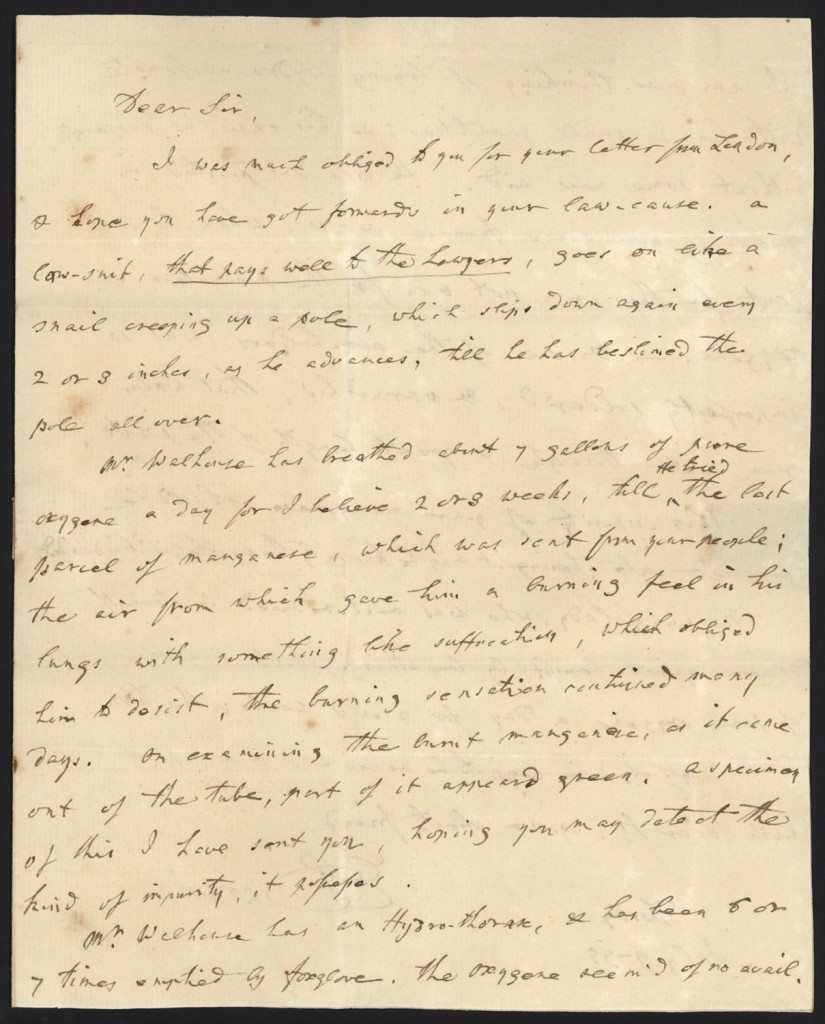 Dear Sir,
I was much obliged to you for your letter from London,
& hope you have got forwards in your law-cause. a
law-suit, that pays well to the Lawyers, goes on like a
snail creeping up a pole, which slips down again every
2 or 3 inches, as he advances, till he has beslimed the
pole all over.
Mr. Walhouse has breathed about 7 gallons of pure
He tried
oxygene a day for I believe 2 or 3 weeks, till ^ the last
parcel of manganese, which was sent from your people;
the air from which gave him a burning feel in his
lungs with something like suffocation, which obliged
him to desist; the burning sensation continued many
days. on examining the burnt manganese, as it came
out of the tube, part of it appeard green. a specimen
of this I have sent you, hoping you may detect the
kind of impurity, it possesses.
Mr. Walhouse has an Hydro-thorax, & has been 6 or
7 times emptied by foxglove. the oxygene seem'd of no avail.